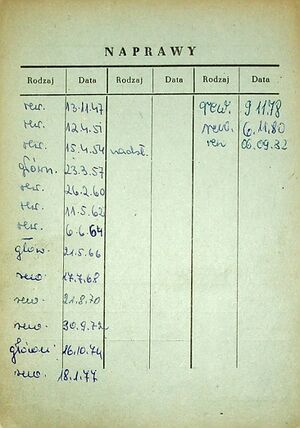 NAPRAWY
Rodzaj Data Rodzaj Data Rodzaj Data
rew. 13.11.47 grew. 9 11 78
rew. 12.4.51 rewo. 6.11.80
rew. 15.4.54 nadzl. rew 06.09.82
główn. 23.3.57
rew. 26.2.60
rew. 11.5.62
rew. 6.6.64
głów. 21.5.66
rewo. 17.7.68
rewo. 21.8.70
rewo. 30.9.72
główn. 16.10.74
rewo. 18.1.77